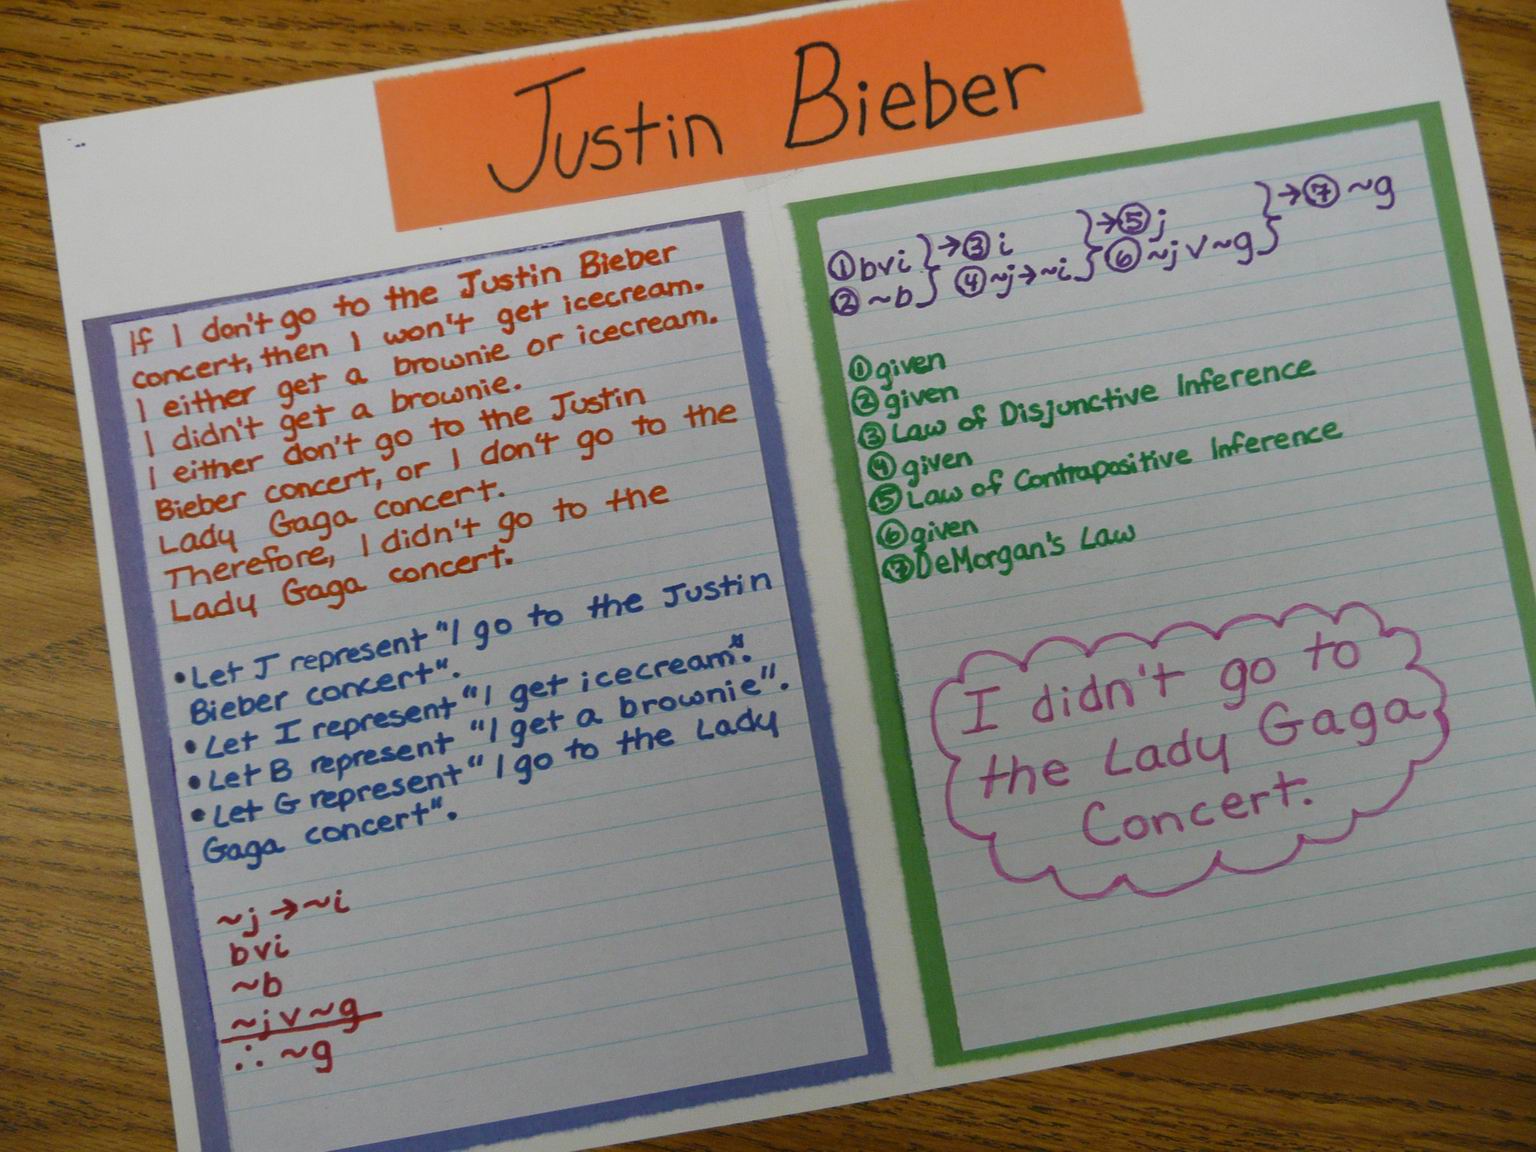 Justin Bieber
If I don't go to the Justin Bieber
concert, then I won't get icecream.
I either get a brownie or icecream.
I didn't get a brownie.
I either don't go to the Justin
Bieber concert, or I don't go to the
Lady Gaga concert.
Therefore, I didn't go to the
Lady Gaga concert.
• Let J represent "I go to the Justin
Bieber concert".
• Let I represent "I get icecream".
• Let B represent "I get a brownie".
• Let G represent "I go to the Lady
Gaga concert".
~j → ~i
b v i
~b
~j v ~g
∴ ~g
① b v i } → ③ i } → ⑤ j } → ⑦ ~g
② ~b } ④ ~j → ~i } ⑥ ~j v ~g }
① given
② given
③ Law of Disjunctive Inference
④ given
⑤ Law of Contrapositive Inference
⑥ given
⑦ DeMorgan's Law
I didn't go to
the Lady Gaga
Concert.